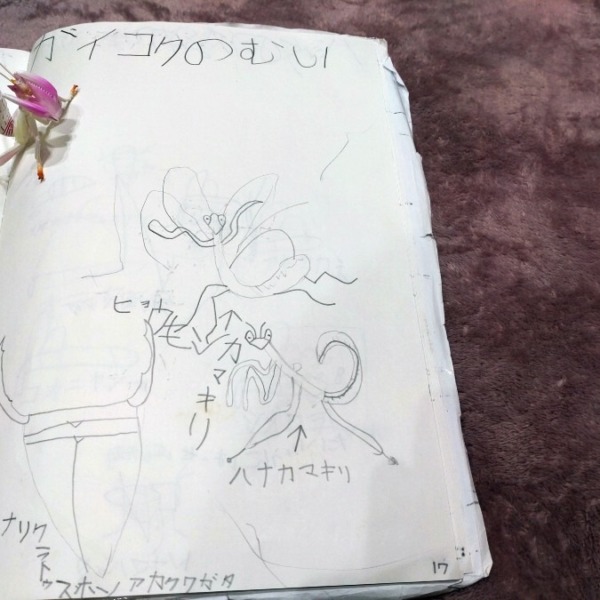 ガイコクのむい
ヒョウモンカマキリ
ハナカマキリ
ナリクラトゥスホーノアカクワガタ
17